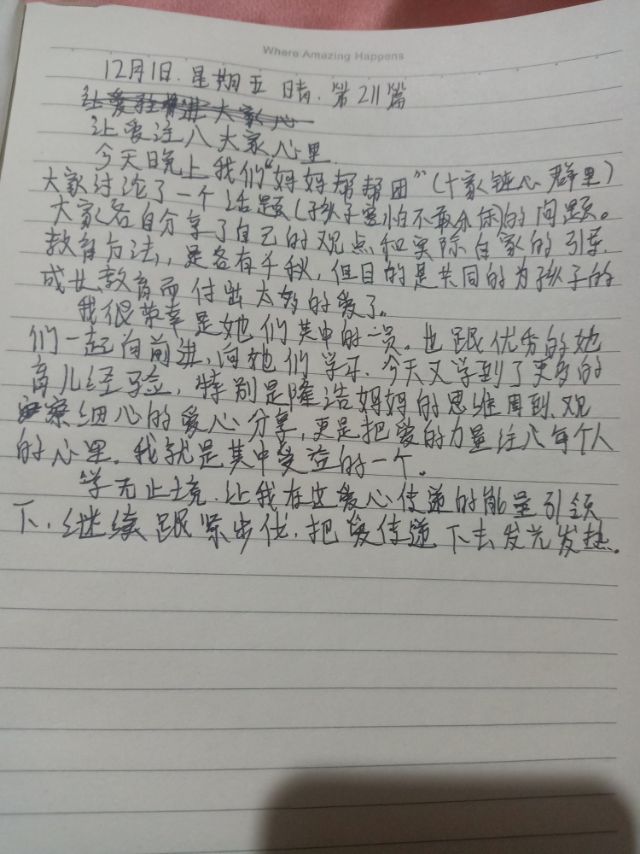 Where Amazing Happens
12月1日.星期五 晴.第211篇
让爱注进大家心
让爱注入大家心里
今天晚上我们“妈妈帮帮团”(十家链心群里)
大家讨论了一个话题(孩子害怕不敢杀价)的问题。
大家各自分享了自己的观点和实际自家的引导
教育方法,是各有千秋,但目的是共同的为孩子的
成长教育而付出太多的爱了。
我很荣幸是她们其中的一员。也跟优秀的她
们一起向前进,向她们学习.今天又学到了更多的
育儿经验,特别是隆浩妈妈的思维周到.观
察细心的爱心分享,更是把爱的力量注入每个人
的心里.我就是其中受益的一个。
学无止境.让我在这爱心传递的能量引领
下.继续跟紧步伐.把爱传递下去发光发热。